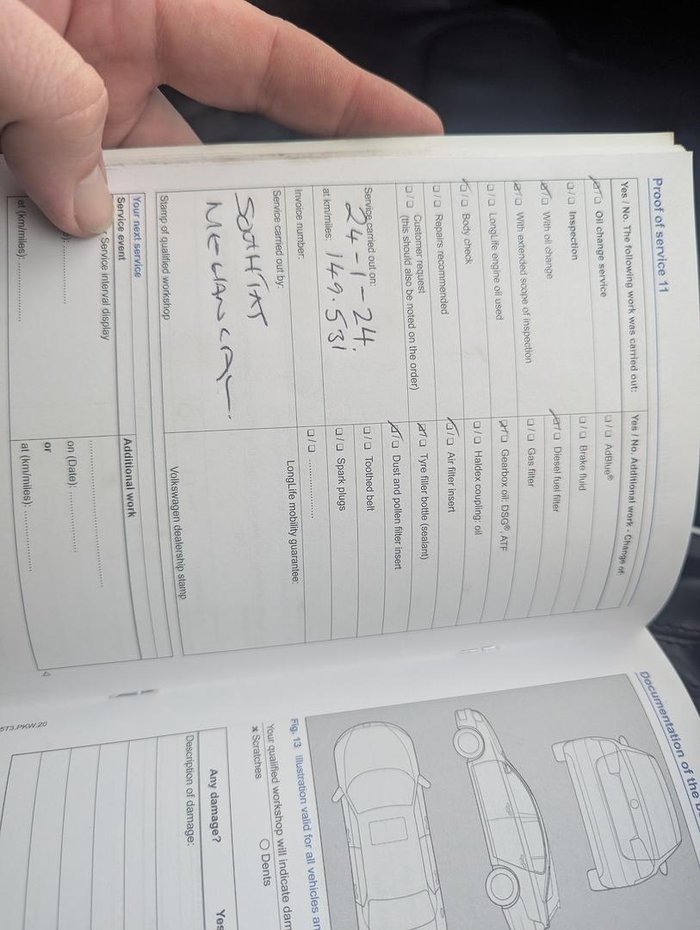 Proof of service 11
Yes / No. The following work was carried out:
☑/☐ Oil change service
☐/☐ Inspection
☑/☐ With oil change
☑/☐ With extended scope of inspection
☐/☐ LongLife engine oil used
☑/☐ Body check
☐/☐ Repairs recommended
☐/☐ Customer request
(this should also be noted on the order)
Service carried out on:
24-1-24.
at km/miles: 149.531
Invoice number:
Service carried out by:
SOUTHTAT
MECHANCAL.
Stamp of qualified workshop
Yes / No. Additional work - Change of:
☐/☐ AdBlue®
☐/☐ Brake fluid
☑/☐ Diesel fuel filter
☐/☐ Gas filter
☑/☐ Gearbox oil: DSG®, ATF
☐/☐ Haldex coupling: oil
☑/☐ Air filter insert
☑/☐ Tyre filler bottle (sealant)
☑/☐ Dust and pollen filter insert
☐/☐ Toothed belt
☐/☐ Spark plugs
☐/☐ ....................
LongLife mobility guarantee:
Volkswagen dealership stamp
Your next service
Service event
Service interval display
at (km/miles): ....................
Additional work
....................
on (Date): ....................
or
at (km/miles): ....................
4
Documentation of the
Fig. 13 Illustration valid for all vehicles
Your qualified workshop will indicate
x Scratches
○ Dents
Any damage?
Yes
Description of damage:
5T3.PKW.20